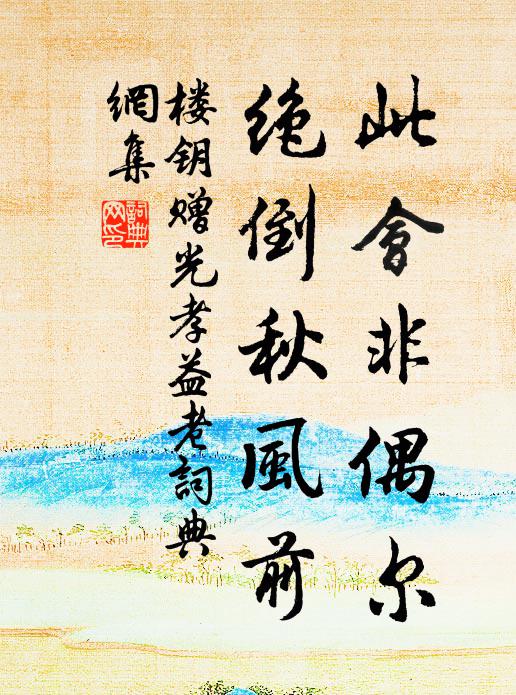 此會非偶尔
绝倒秋風前
楼钥赠光孝益老詞典
網集
詞典網印